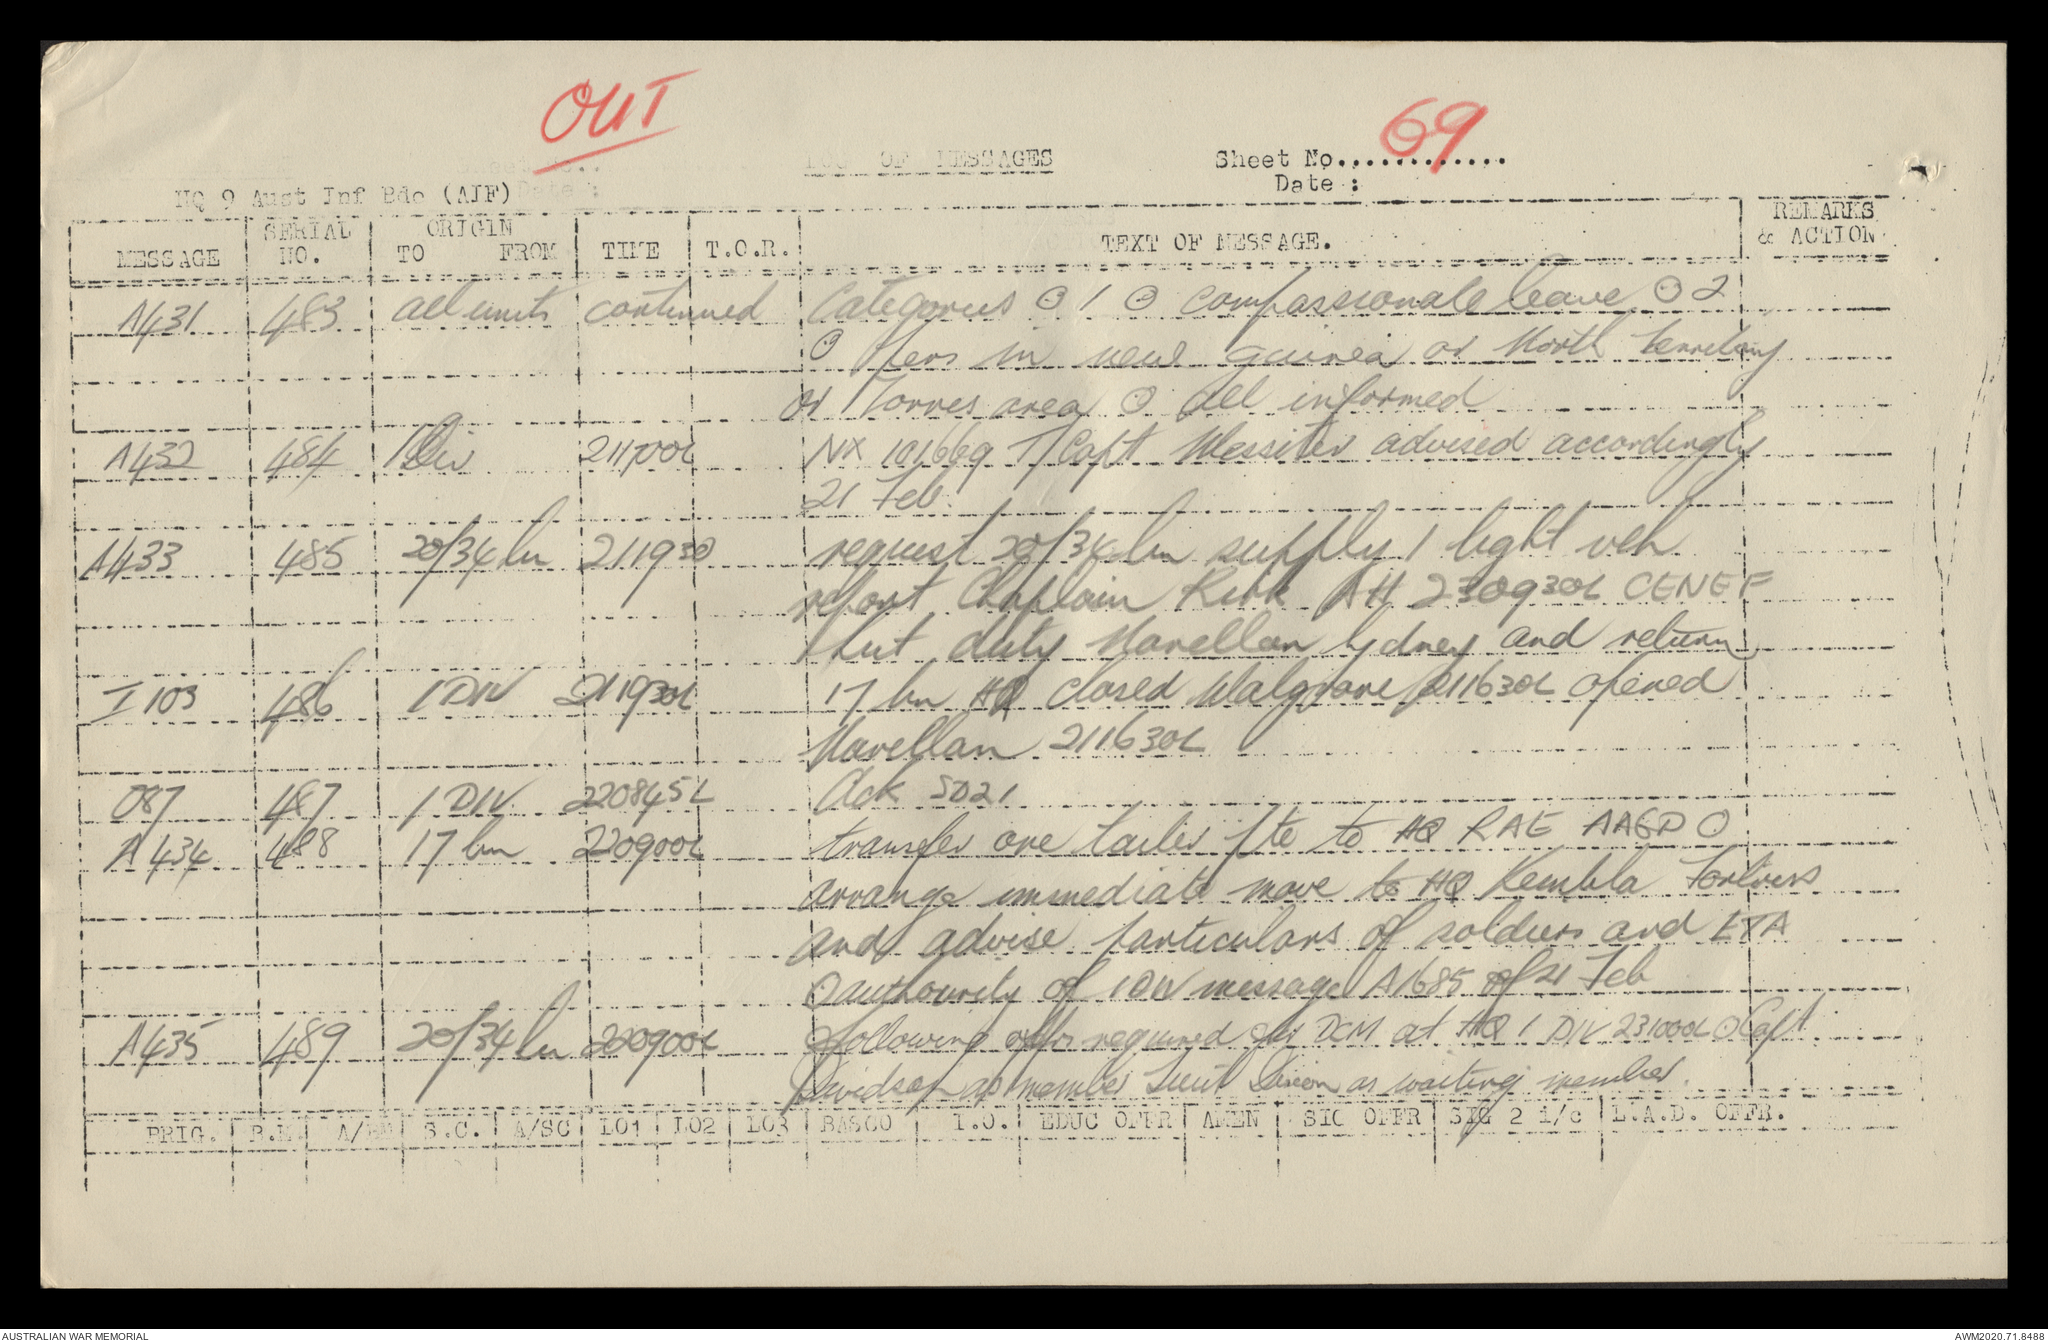 OUT
69
LOG OF MESSAGES
Sheet No.............
Date :
HQ 9 Aust Inf Bde (AIF)
MESSAGE SERIAL NO. ORIGIN TO FROM TIME T.O.R. TEXT OF MESSAGE. REMARKS & ACTION
A431 483 all units continued Categories ⊙ 1 ⊙ compassionate leave ⊙ 2
⊙ pers in new guinea or North Territory
or Torres area ⊙ all informed
A432 484 1 Div 211700L NX 101669 T/Capt Messiter advised accordingly
21 Feb.
A433 485 20/34 bn 211930 request 20/34 bn supply 1 light veh
report Chaplain Kirk AH 230930L CENEF
hut duty Narellan Sydney and return
I 103 486 1 DIV 211930L 17 bn HQ closed Walgrove 211630L opened
Narellan 211630L
O87 487 1 DIV 220845L Ack SD21
A434 488 17 bn 220900L transfer one tailor pte to HQ RAE AAGD ⊙
arrange immediate move to HQ Kembla Fortress
and advise particulars of soldiers and ETA
⊙ authourity of 1 DIV message A1685 of 21 Feb
A435 489 20/34 bn 220900L following offrs required for DCM at HQ 1 DIV 231000L ⊙ Capt
Davidson as member Lieut as waiting member.
BRIG. B.M. A/BM S.C. A/SC LO1 LO2 LO3 BASCO I.O. EDUC OFFR AMEN SIG OFFR SIG 2 i/c L.A.D. OFFR.
AUSTRALIAN WAR MEMORIAL
AWM2020.71.8488